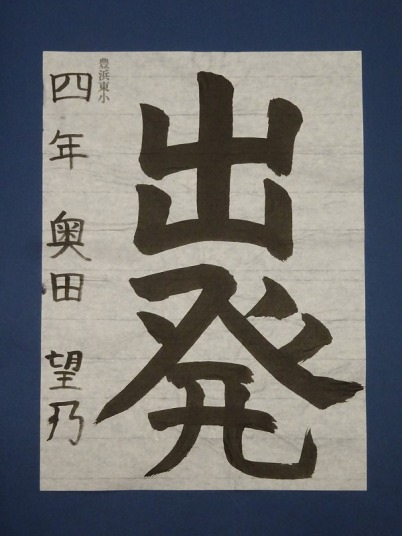 出発
豊浜東小
四年 奥田 望乃